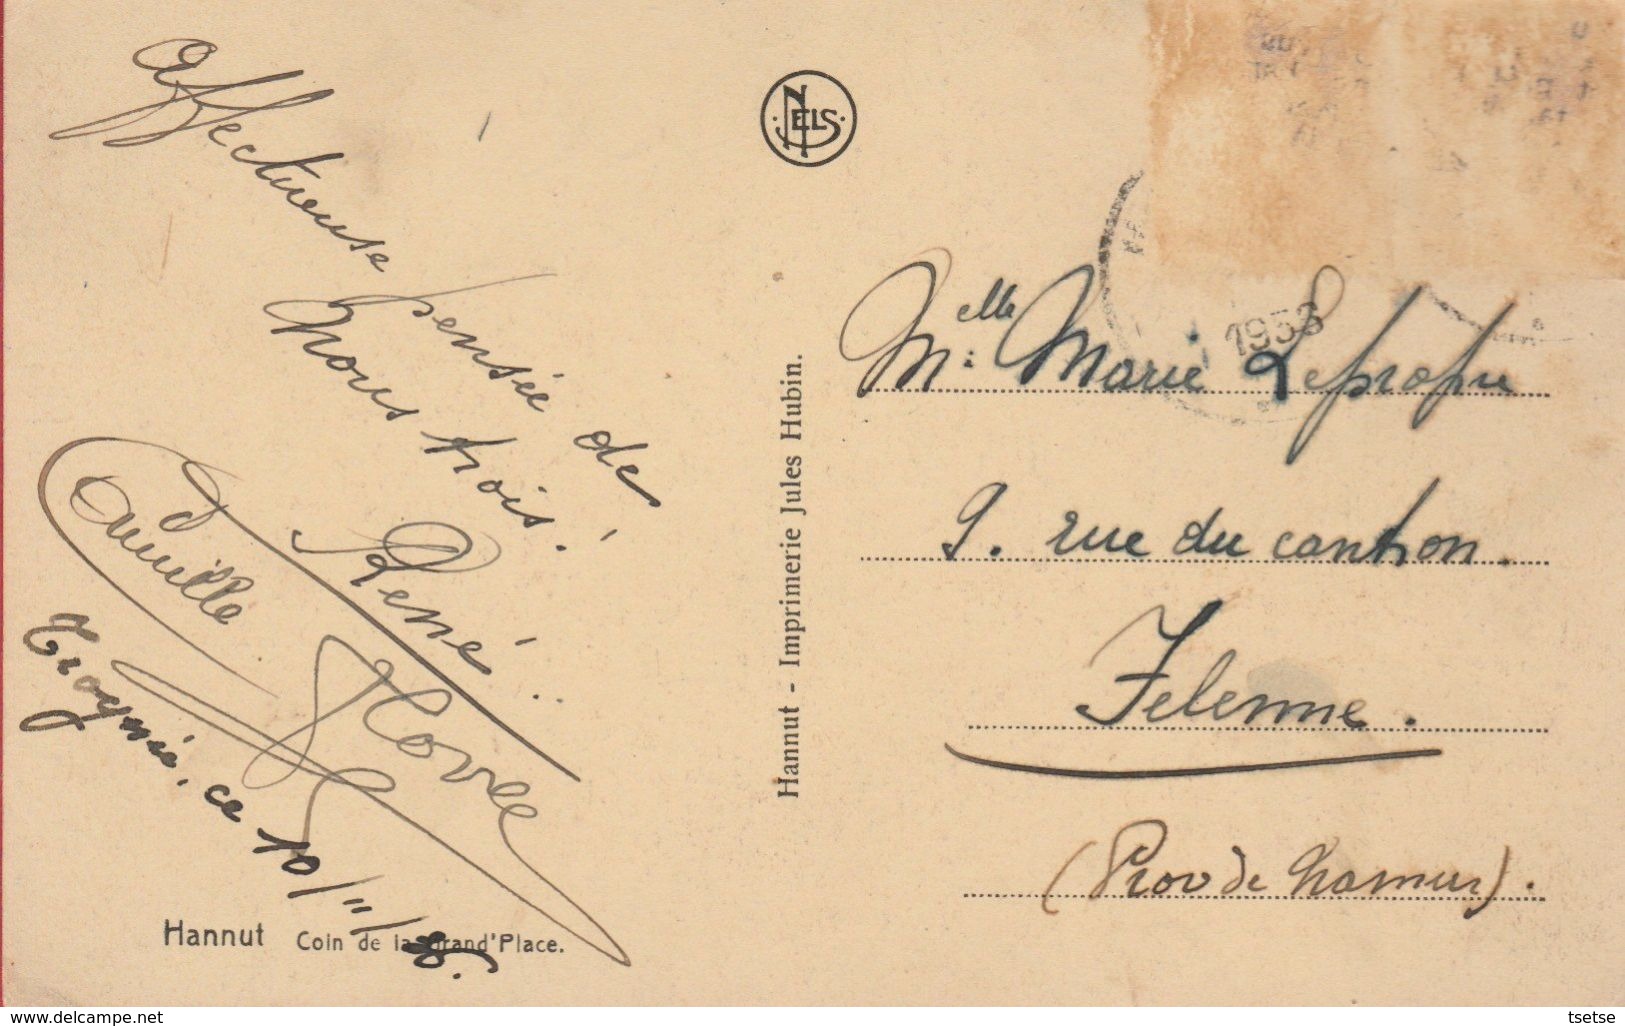 Affectueuse pensée de
nous trois!
René..
Camille
Trognée, ce 10/11/36.
Hannut Coin de la Grand'Place.
NELS
Hannut - Imprimerie Jules Hubin.
1936
Melle Marie Lepropre
9. rue du canton.
Felenne.
(Prov de Namur).
www.delcampe.net
tsetse